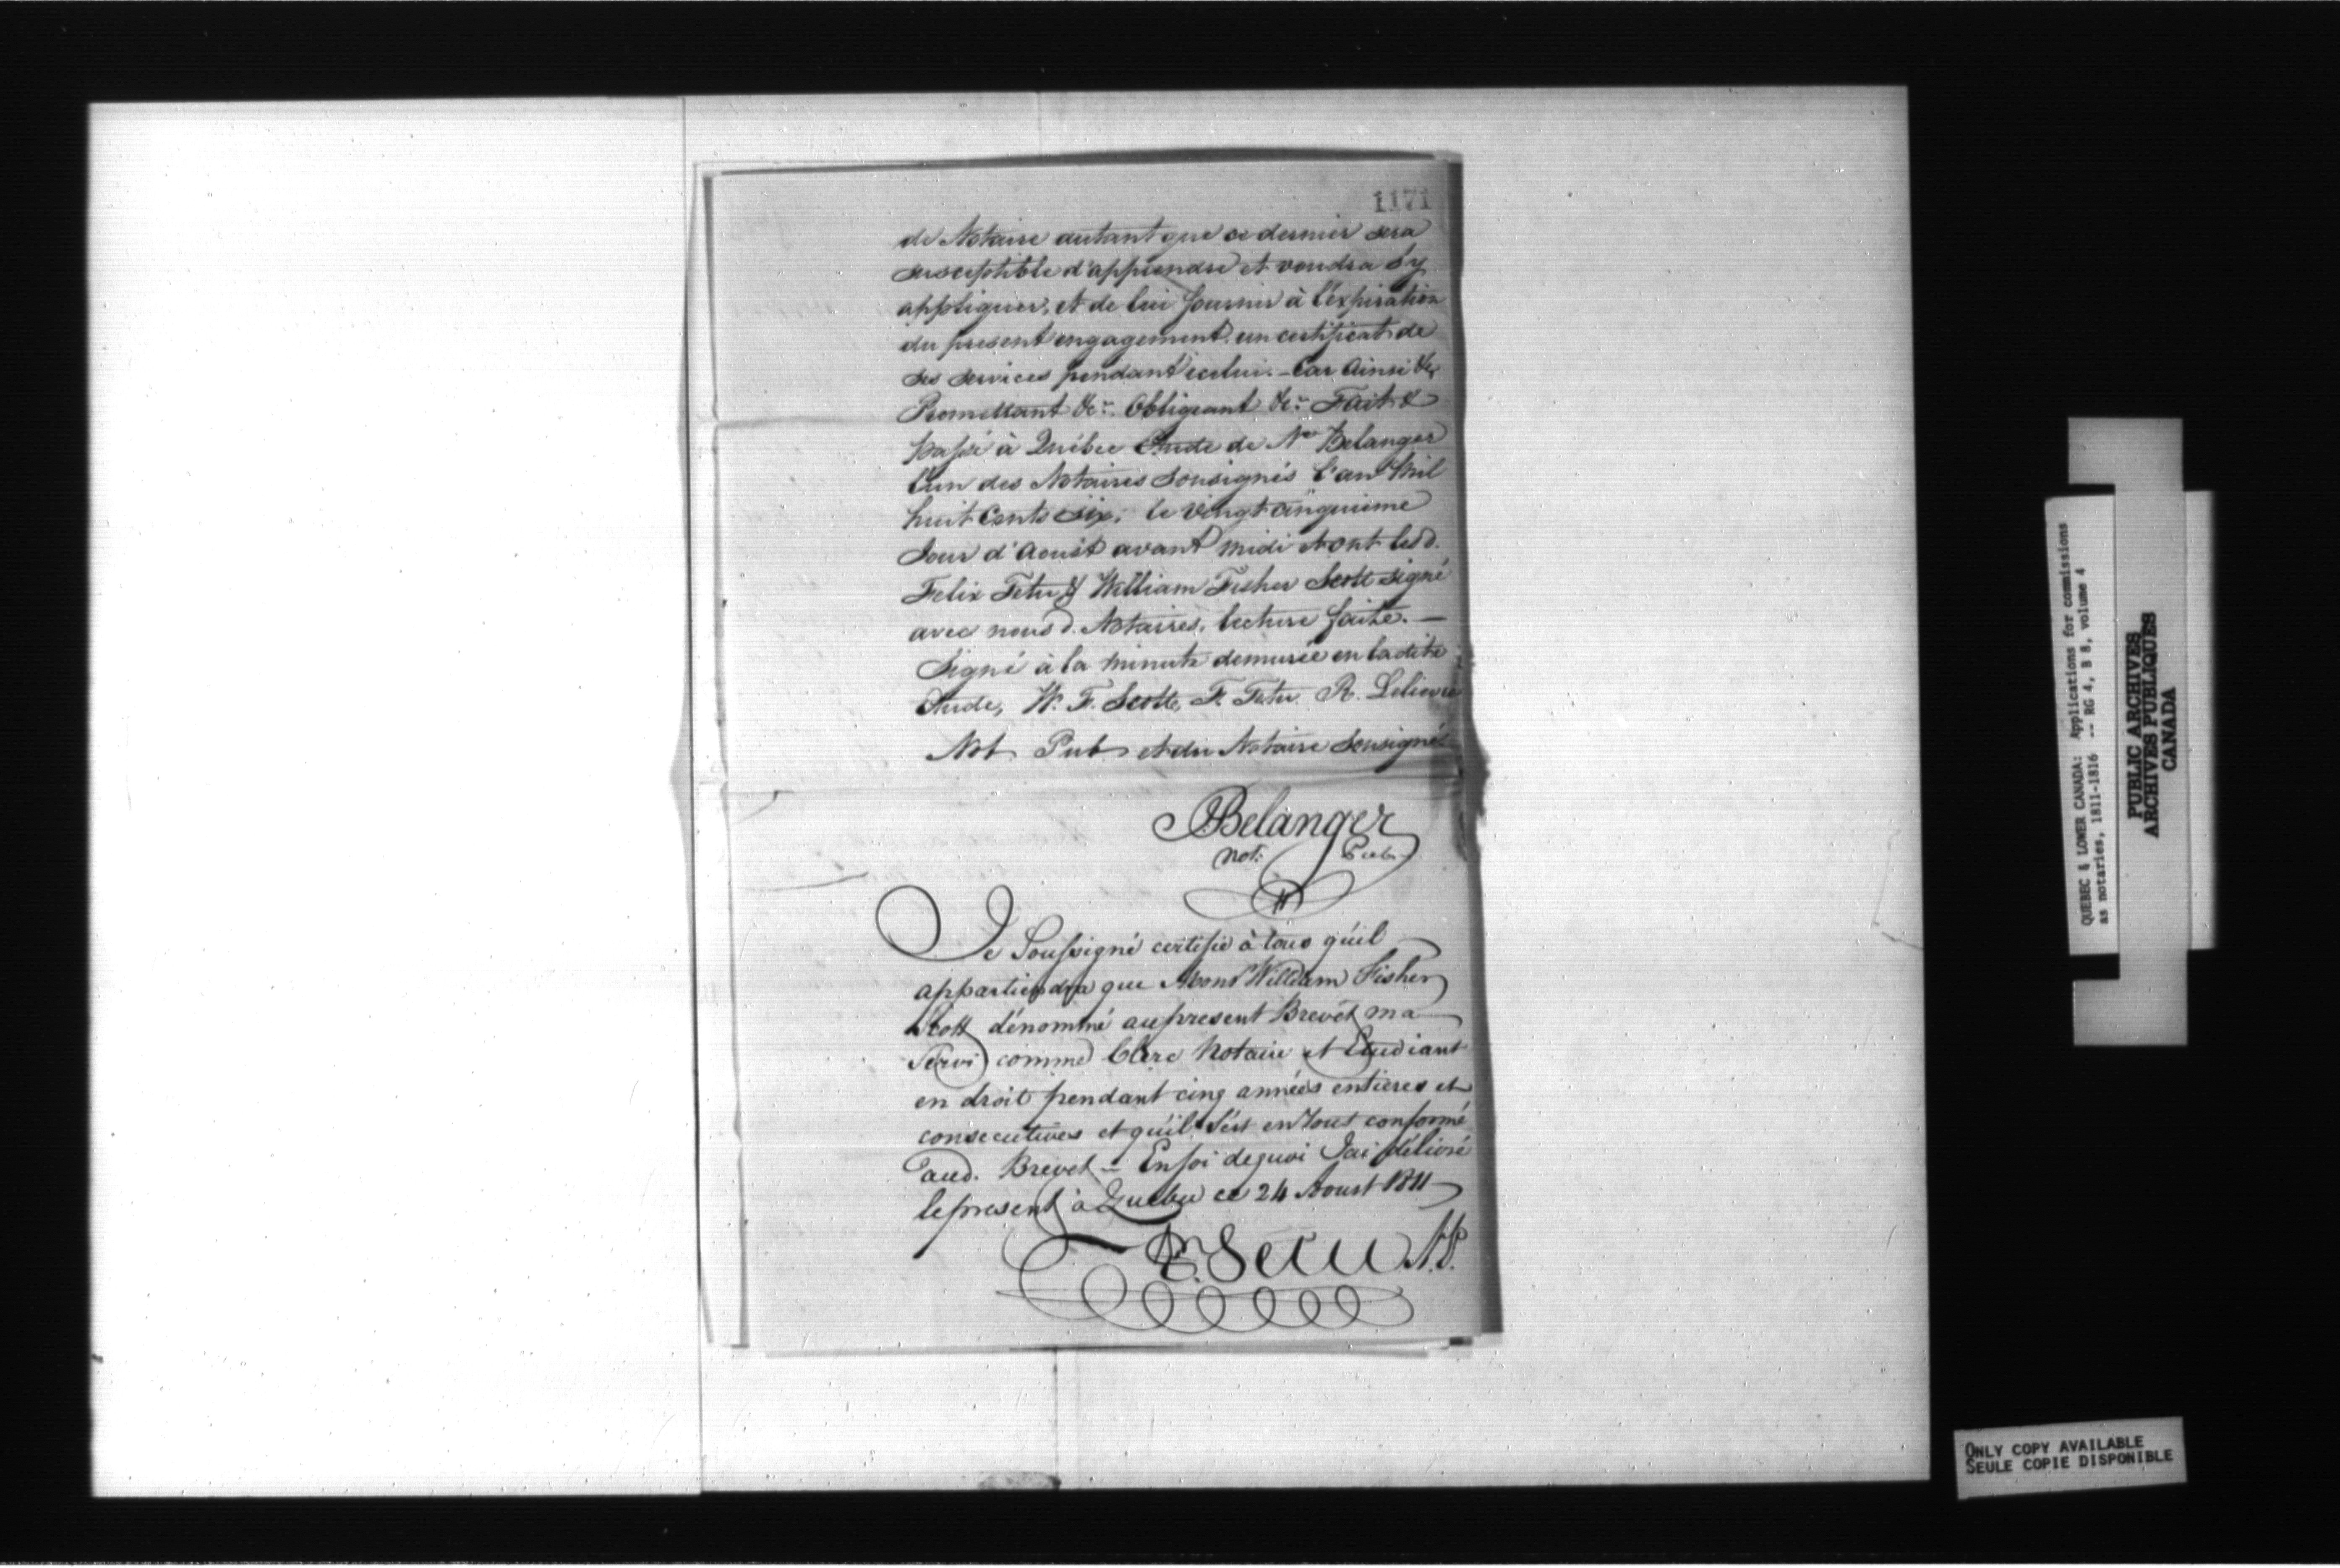 1171
de Notaire autant que ce dernier sera
susceptible d'apprendre et voudra s'y
appliquer, et de lui fournir à l'expiration
du present engagement un certificat de
ses services pendant icelui. - Car Ainsi &c
Promettant &c.. Obligeant &c.. Fait &
passé à Québec Etude de Me Belanger
l'un des Notaires Sousignés l'an Mil
huit Cents six, le vingt cinquieme
Jour d'Aoust avant midi et ont lesd.
Felix Tetu & William Fisher Scott signé
avec nous d. Notaires, lecture faite. —
Signé à la minute demurée en ladite
Etude, W. F. Scott, F. Tetu. R. Lelievre
Not Pub et du Notaire Sousigné
Belanger
Not: Pub
Je Soussigné certifie à tous qu'il
appartiendra que Monsr William Fisher
Scott dénommé au present Brevet ma
Servi comme Clerc Notaire et Etudiant
en droit pendant cinq années entieres et
consecutives et qu'il s'est en tout conformé
aud. Brevet - En foi de quoi Jai délivré
le present à Quebec ce 24 Aoust 1811
Tetu N.P.
QUEBEC & LOWER CANADA: Applications for commissions
as notaries, 1811-1816 -- RG 4, B 8, volume 4
PUBLIC ARCHIVES
ARCHIVES PUBLIQUES
CANADA
ONLY COPY AVAILABLE
SEULE COPIE DISPONIBLE